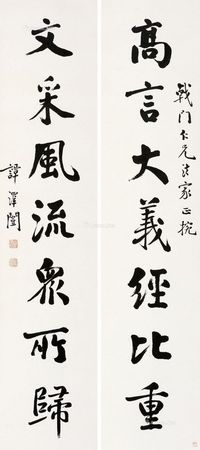 高言大義經比重
戟门仁兄法家正捥
文采風流眾所歸
譚澤闓